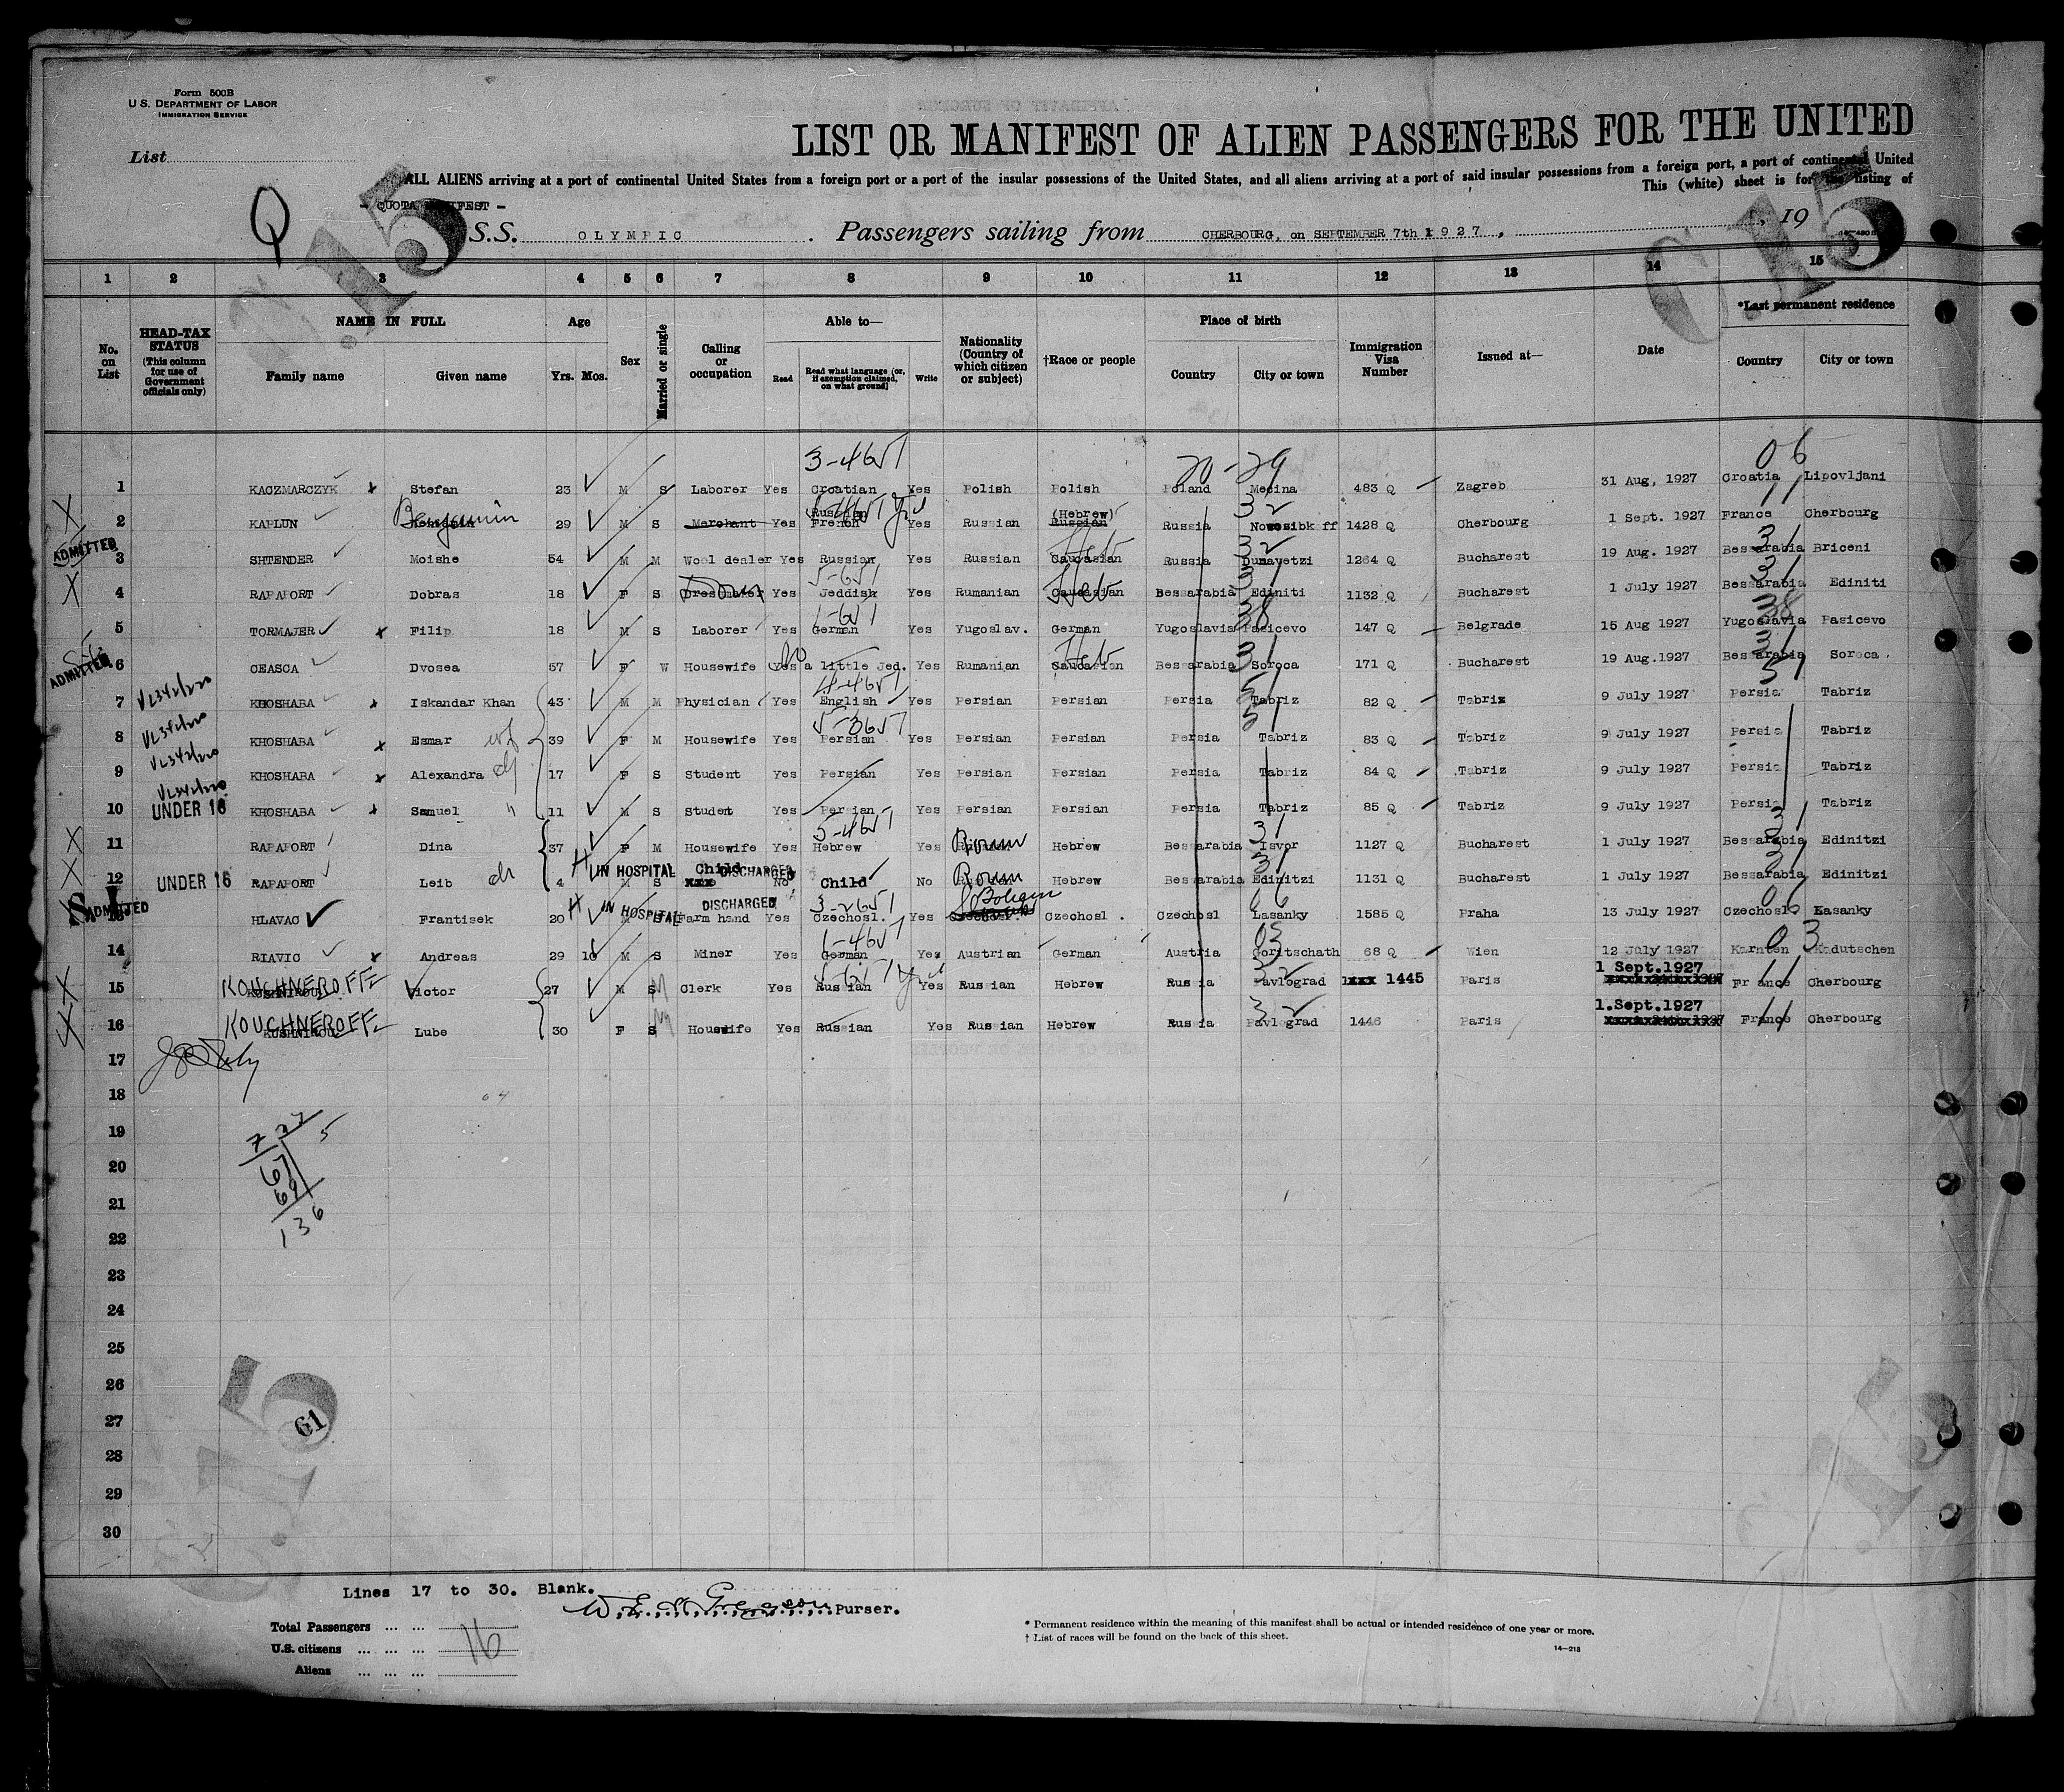 Form 500B
U.S. DEPARTMENT OF LABOR
IMMIGRATION SERVICE
List
LIST OR MANIFEST OF ALIEN PASSENGERS FOR THE UNITED
ALL ALIENS arriving at a port of continental United States from a foreign port or a port of the insular possessions of the United States, and all aliens arriving at a port of said insular possessions from a foreign port, a port of continental United
This (white) sheet is for the listing of
Q
- QUOTA MANIFEST -
C.15
C.15
S.S. OLYMPIC . Passengers sailing from CHERBOURG, on SEPTEMBER 7th 1927, , 19
1 2 3 4 5 6 7 8 9 10 11 12 13 14 15
No. on List
HEAD-TAX STATUS (This column for use of Government officials only)
NAME IN FULL
Family name Given name
Age
Yrs. Mos.
Sex
Married or single
Calling or occupation
Able to—
Read
Read what language [or, if exemption claimed, on what ground]
Write
Nationality (Country of which citizen or subject)
†Race or people
Place of birth
Country City or town
Immigration Visa Number
Issued at—
Date
*Last permanent residence
Country City or town
3-4651 20-29 06
1 KACZMARCZYK x Stefan 23 M S Laborer Yes Croatian Yes Polish Polish Poland Mecina 483 Q Zagreb 31 Aug, 1927 Croatia Lipovljani
X 2 KAPLUN Benjamin 29 M S Merchant Yes Russian French Yes Russian (Hebrew) Russian Russia Nowosibkoff 1428 Q Cherbourg 1 Sept. 1927 France Cherbourg
ADMITTED 3 SHTENDER Moishe 54 M M Wool dealer Yes Russian Yes Russian Caucasian Heb Russia Dunayetzi 1264 Q Bucharest 19 Aug. 1927 Bessarabia Briceni
X 4 RAPAPORT Dobras 18 F S Dressmaker Yes Jeddish Yes Rumanian Caucasian Heb Bessarabia Ediniti 1132 Q Bucharest 1 July 1927 Bessarabia Ediniti
5 TORMAJER x Filip 18 M S Laborer Yes German Yes Yugoslav. German Yugoslavia Pasicevo 147 Q Belgrade 15 Aug 1927 Yugoslavia Pasicevo
ADMITTED 6 CEASCA Dvosea 57 F W Housewife Yes a little Jed. Yes Rumanian Caucasian Heb Bessarabia Soroca 171 Q Bucharest 19 Aug.1927 Bessarabia Soroca.
7 KHOSHABA x Iskandar Khan 43 M M Physician Yes English Yes Persian Persian Persia Tabriz 82 Q Tabriz 9 July 1927 Persia Tabriz
8 KHOSHABA x Esmar wf 39 F M Housewife Yes Persian Yes Persian Persian Persia Tabriz 83 Q Tabriz 9 July 1927 Persia Tabriz
9 KHOSHABA x Alexandra ch 17 F S Student Yes Persian Yes Persian Persian Persia Tabriz 84 Q Tabriz 9 July 1927 Persia Tabriz
10 UNDER 16 KHOSHABA x Samuel " 11 M S Student Yes Persian Yes Persian Persian Persia Tabriz 85 Q Tabriz 9 July 1927 Persia Tabriz
X 11 RAPAPORT Dina 37 F M Housewife Yes Hebrew Yes Roum Hebrew Bessarabia Isvor 1127 Q Bucharest 1 July 1927 Bessarabia Edinitzi
X 12 UNDER 16 RAPAPORT Leib ch 4 H IN HOSPITAL M S Child DISCHARGED No Child No Roum Hebrew Bessarabia Edinitzi 1131 Q Bucharest 1 July 1927 Bessarabia Edinitzi
ADMITTED 13 HLAVAC Frantisek 20 H IN HOSPITAL DISCHARGED M S Farm hand Yes Czechosl. Yes Czechosl. Czechosl. Czechosl Lasanky 1585 Q Praha 13 July 1927 Czechosl. Lasanky
14 RIAVIC x Andreas 29 10 M S Miner Yes German Yes Austrian German Austria Goritschath 68 Q Wien 12 July 1927 Karnten Radutschen
X 15 KOUCHNEROFF Victor 27 M S M Clerk Yes Russian Yes Russian Hebrew Russia Pavlograd 1xxx 1445 Paris 1 Sept.1927 France Cherbourg
X 16 KOUCHNEROFF Lube 30 F S M Housewife Yes Russian Yes Russian Hebrew Russia Pavlograd 1446 Paris 1.Sept.1927 France Cherbourg
17
18
19
20
21
22
23
24
25
26
27
28
29
30
67
69
136
61
C.15
C.15
Lines 17 to 30. Blank.
Purser.
Total Passengers ... ...
U.S. citizens ... ... ... 16
Aliens ... ... ...
* Permanent residence within the meaning of this manifest shall be actual or intended residence of one year or more.
† List of races will be found on the back of this sheet.
14—213